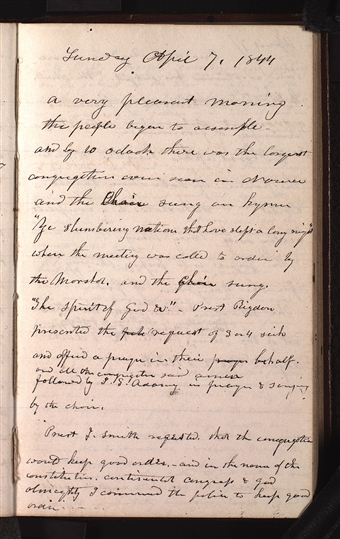 Sunday April 7, 1844
a very pleasant morning.
the people began to assemble
and by 10 oclock there was the largest
congregation ever seen in Nauvoo
and the Choir sung an hymn
"Ye slumbering nations that have slept a long night"
when the meeting was called to order by
the Marshal. and the Choir sung.
"The Spirit of God &c". - Prest Rigdon
presented the request of 3 or 4 sick
and offered a prayer in their behalf.
and all the congregation said amen
followed by J. S. in prayer & singing
by the choir.
Prest J. Smith requested. that the congregation
would keep good order.- and in the name of the
constitution. continental congress & god
almighty I command the police to keep good
order